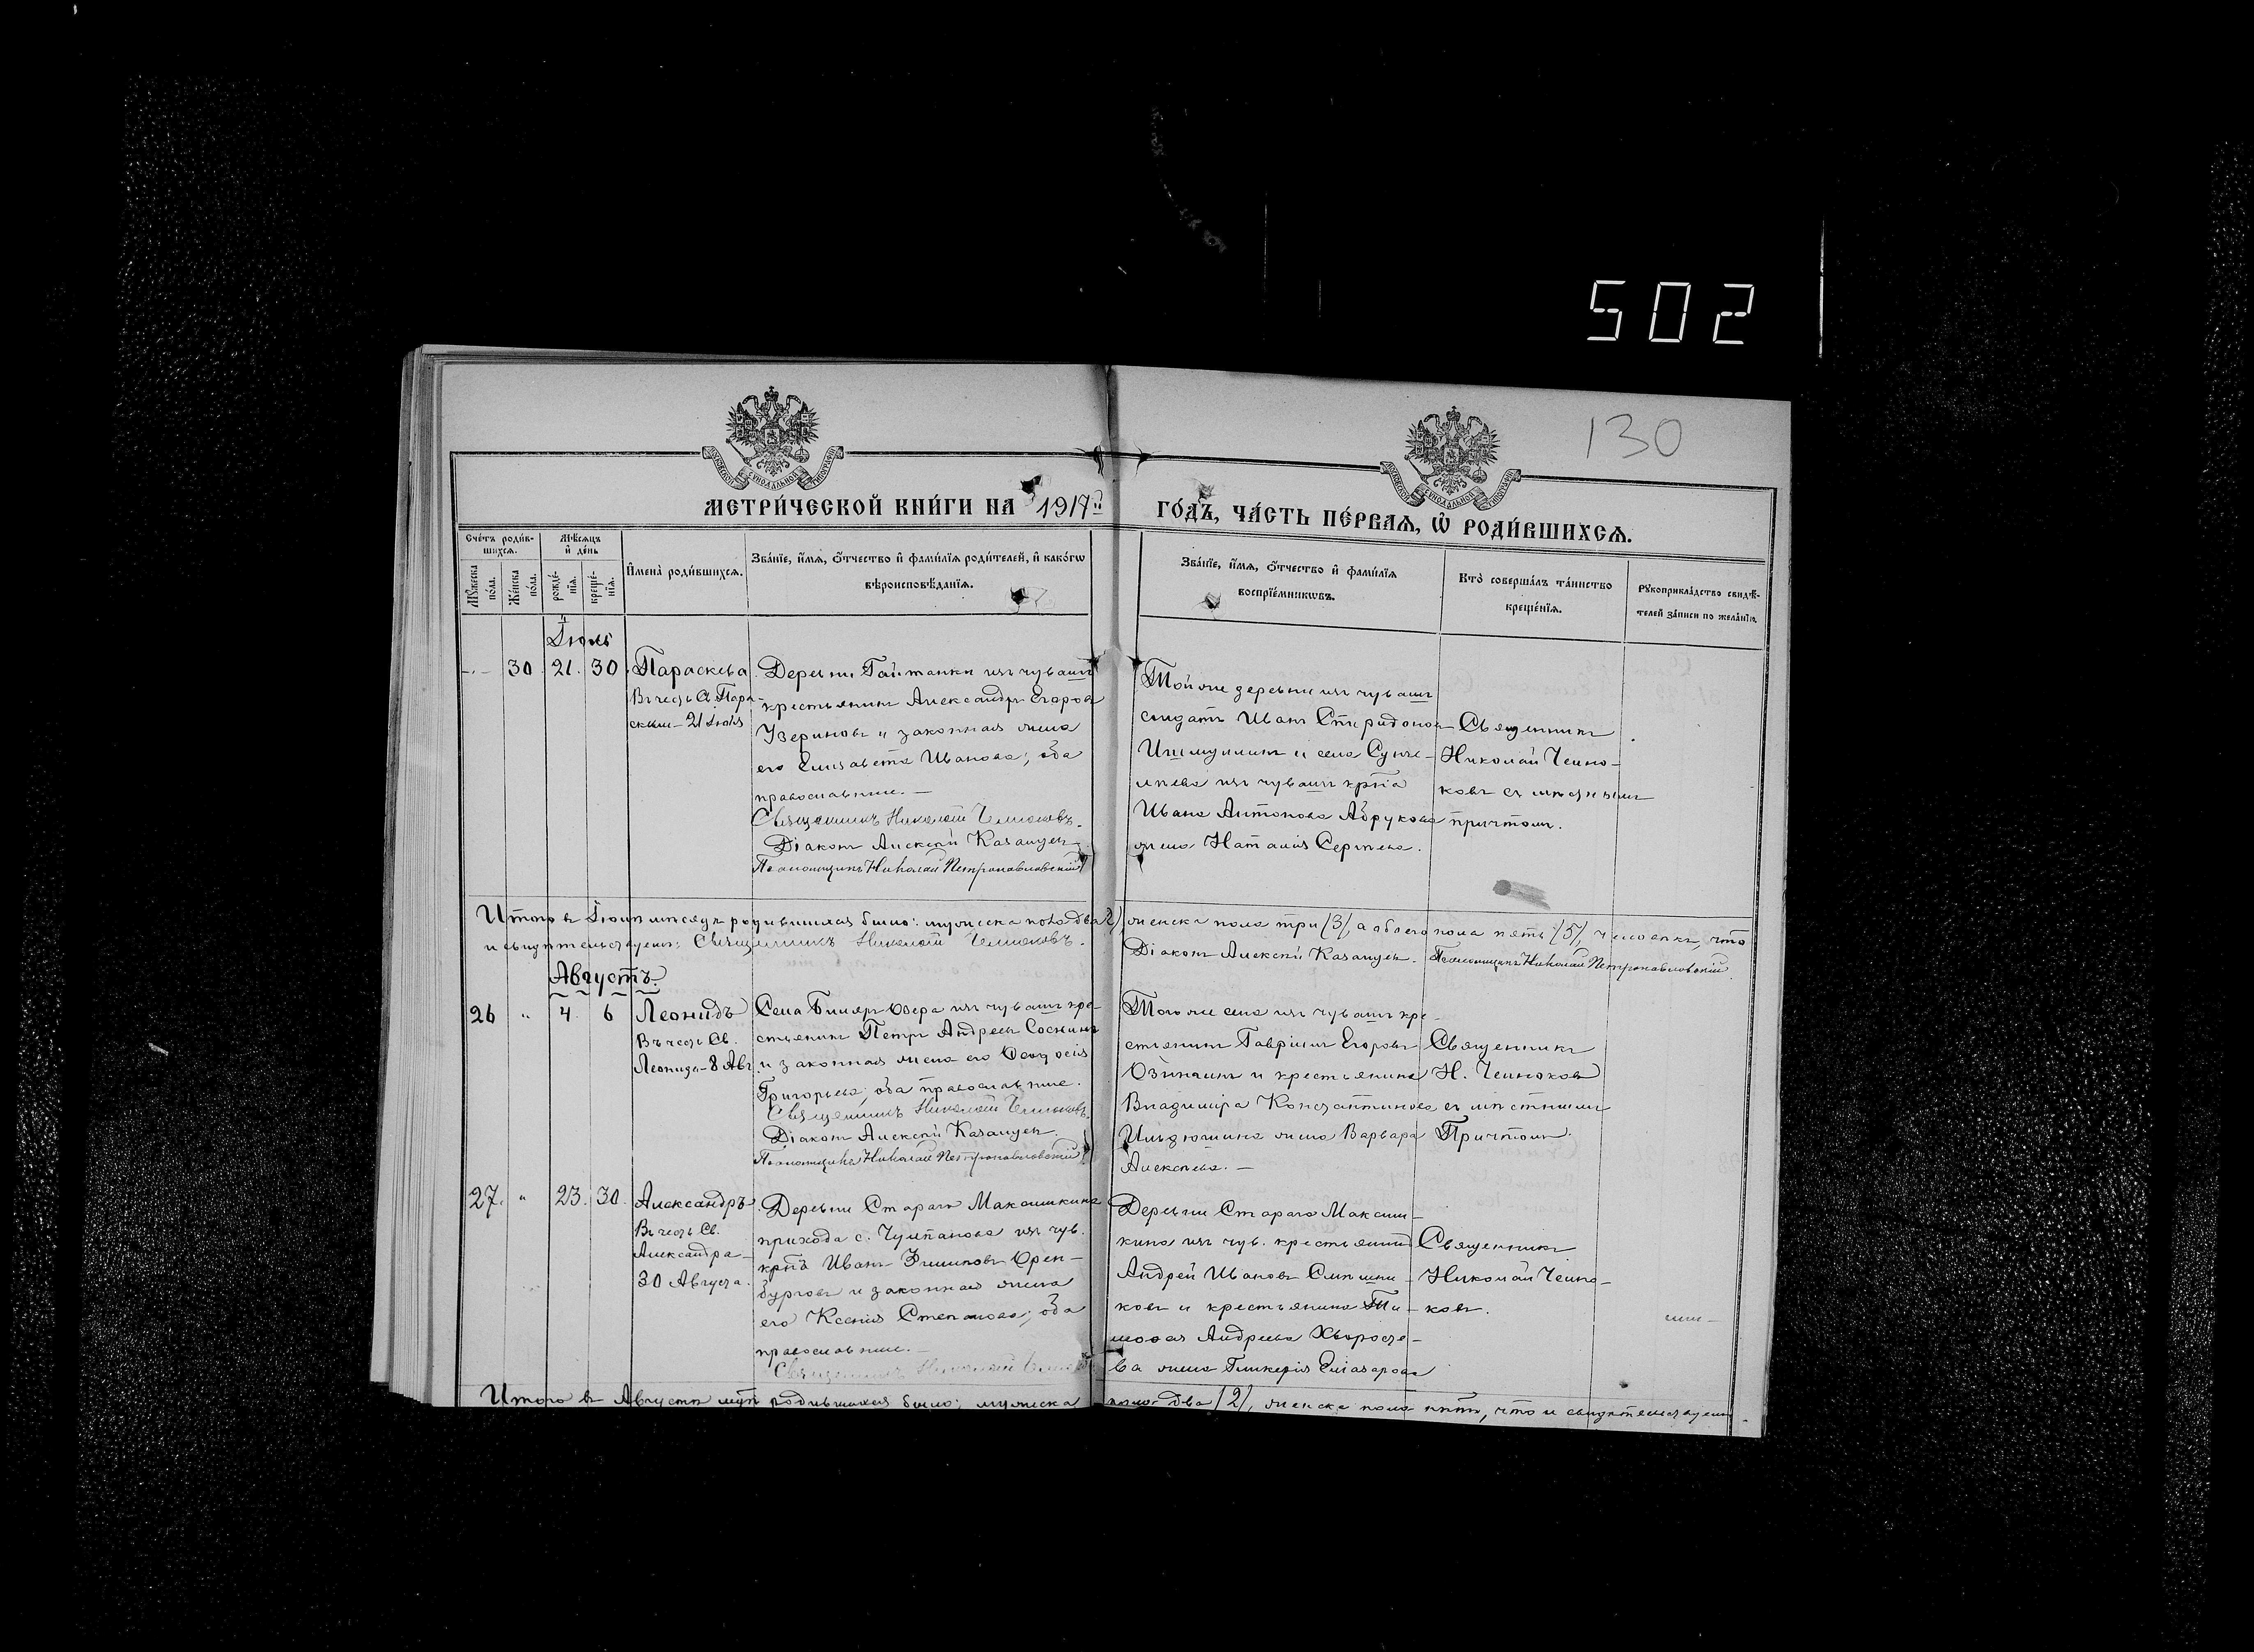 502
130
МЕТРИ́ЧЕСКОЙ КНИ́ГИ НА 1917й ГО́ДЪ, ЧА́СТЬ ПЕ́РВАѦ, Ѡ҆ РОДИ́ВШИХСѦ.
Сче́тъ роди́вшихсѧ.
Мѣ́сѧцъ и҆ де́нь
Мꙋ́жеска по́ла.
Же́нска по́ла.
рожде́нїѧ.
креще́нїѧ.
И҆мена̀ роди́вшихсѧ.
Зва́нїе, и҆́мѧ, ѻ҆́тчество и҆ фами́лїѧ роди́телей, и҆ како́гѡ
вѣроисповѣ́данїѧ.
Зва́нїе, и҆́мѧ, ѻ҆́тчество и҆ фами́лїѧ
воспрїе́мникѡвъ.
Кто̀ соверша́лъ та́инство
креще́нїѧ.
Рꙋкоприкла́дство свидѣ́-
телей за́писи по жела́нїю.
Іюль
30 21. 30
Параскева
Въ честь Св. Пара-
скевы – 21 іюля
Деревни Гайтанки изъ чувашъ
крестьянинъ Александръ Егоровъ
Узериновъ и законная жена
его Елизавета Иванова; оба
православные. –
Священникъ Николай Чемоковъ.
Діаконъ Алексѣй Казанцевъ
Псаломщикъ Николай Петропавловскій
Той же деревни изъ чувашъ
солдатъ Иванъ Спиридоновъ
и села Сунче-
лѣева изъ чувашъ крѣ̃на
Ивана Антонова Абрукова
жена Наталія Сергѣева.
Священникъ
Николай Чемо-
ковъ съ мѣстнымъ
причтомъ.
Итого въ Іюлѣ мѣсяцѣ родившихся было: мужеска пола два (2), женска пола три (3), а обоего пола пять (5), человѣкъ, что
и свидѣтельствуемъ: Священникъ Николай Чемоковъ. Діаконъ Алексѣй Казанцевъ. Псаломщикъ Николай Петропавловскій
Августъ.
26 " 4 6
Леонидъ
Въ честь Св.
Леонида – 8 Авг.
Села Биляръ Озера изъ чувашъ кре-
стьянинъ Петръ Андреевъ Соснинъ
и законная жена его Ѳеодосія
Григорьева; оба православные.
Священникъ Николай Чемоковъ.
Діаконъ Алексѣй Казанцевъ.
Псаломщикъ Николай Петропавловскій
Того же села изъ чувашъ кре-
стьянинъ Гавріилъ Егоровъ
и крестьянина
Владиміра Константинова
Ильдюшкина жена Варвара
Алексѣева. –
Священникъ
Н. Чемоковъ
съ мѣстнымъ
Причтомъ.
27. " 23. 30.
Александръ
Въ честь Св.
Александра –
30 Августа.
Деревни Стараго Максимкина
прихода с. Чулпанова изъ чув.
крнъ Иванъ Филиповъ Орен-
бурговъ и законная жена
его Ксенія Степанова; оба
православные. –
Священникъ Николай Чемоковъ
Деревни Стараго Максим-
кина изъ чув. крестьянинъ
Андрей Ивановъ
ковъ и крестьянина Ти-
моѳея Андреева Хворосте-
ва жена Гликерія Елеазарова
Священникъ
Николай Чемо-
ковъ.
Итого въ Августѣ мѣ̃цѣ родившихся было: мужеска пола два (2), женска пола нѣтъ, что и свидѣтельствуемъ